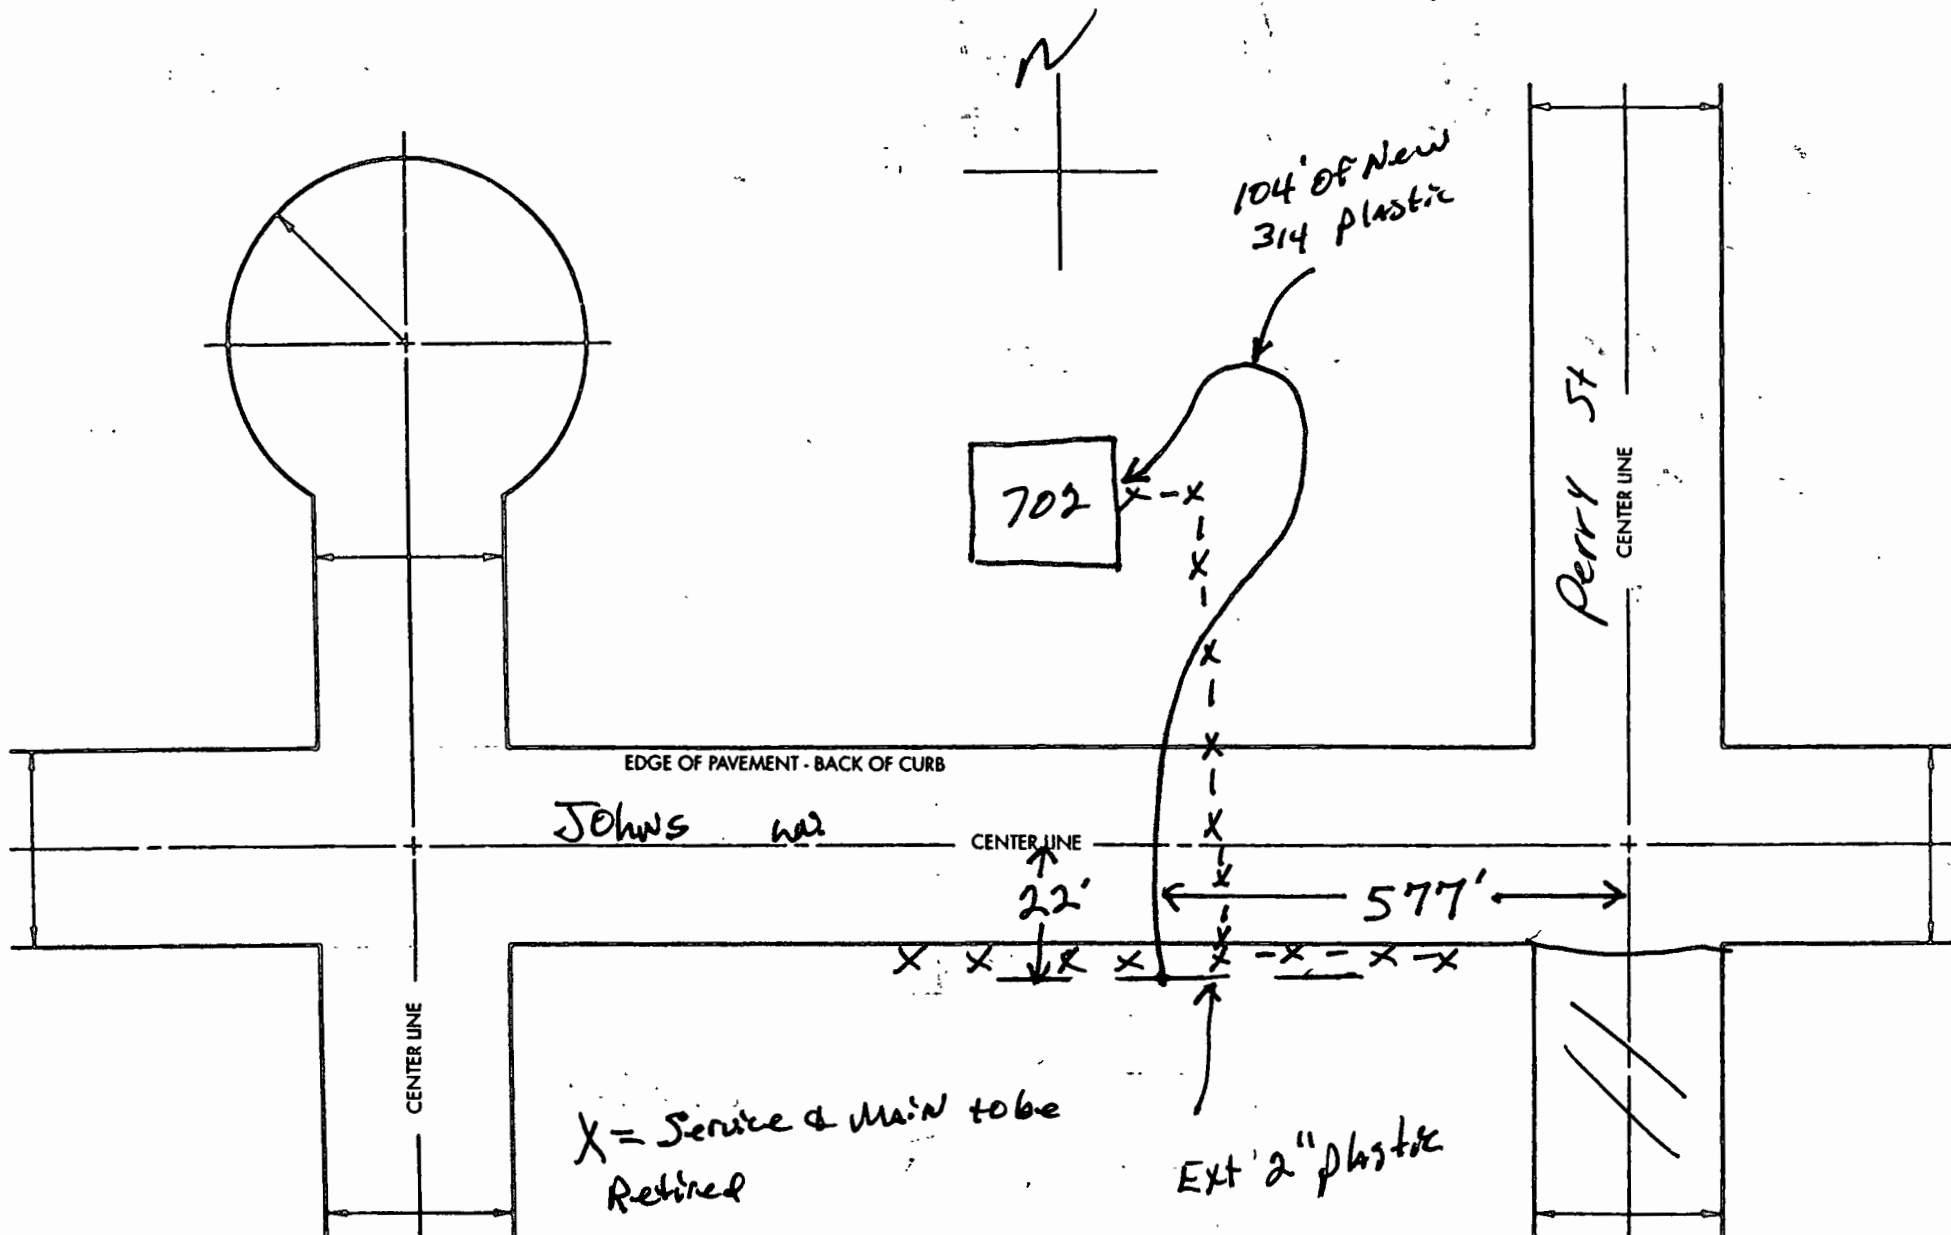 N
104' of New
3/4 plastic
Perry St.
CENTER LINE
702
EDGE OF PAVEMENT - BACK OF CURB
Johns
CENTER LINE
22'
577'
X X X X X - X - X - X
CENTER LINE
X = Service & Main to be
Retired
Ext 2" plastic